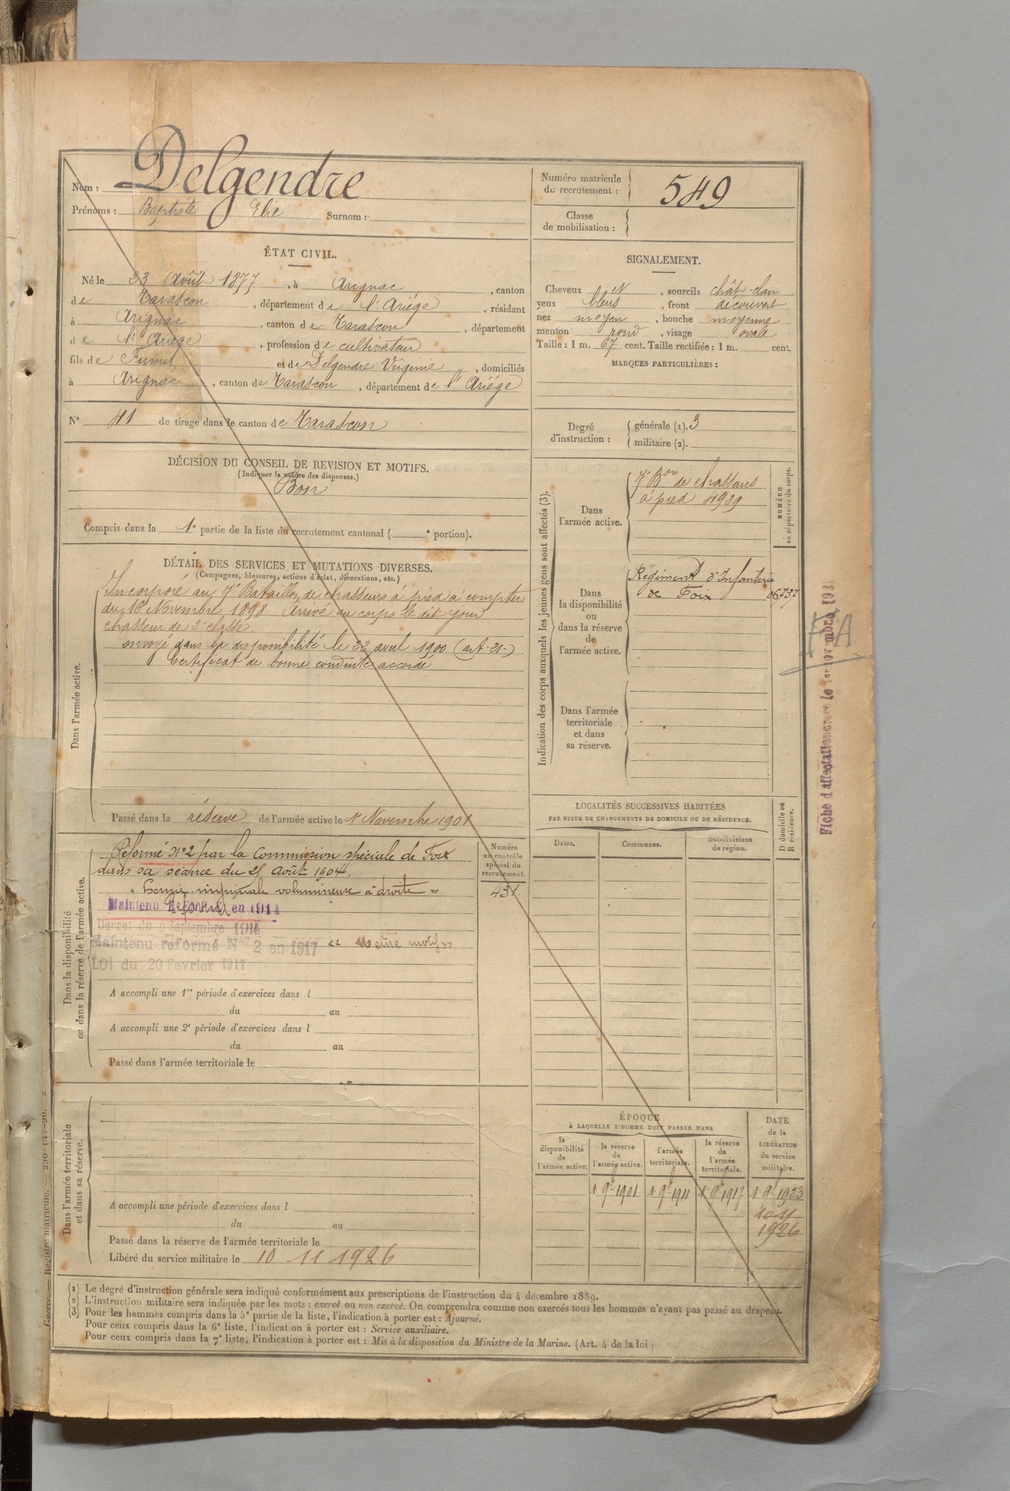 Nom : Delgendre
Prénoms : Baptiste Elie Surnom :
Numéro matricule du recrutement : 549
Classe de mobilisation :
ÉTAT CIVIL.
Né le 23 Août 1877, à Arignac, canton
de Tarascon, département de l'Ariége, résidant
à Arignac, canton de Tarascon, département
de l'Ariége, profession de cultivateur
fils de et de Delgendre Virginie, domiciliés
à Arignac, canton de Tarascon, département de l'Ariége
N° 41 de tirage dans le canton de Tarascon
SIGNALEMENT.
Cheveux et, sourcils chât-clair
yeux bleus, front découvert
nez moyen, bouche moyenne
menton rond, visage ovale
Taille : 1 m. 67 cent. Taille rectifiée : 1 m. cent.
MARQUES PARTICULIÈRES :
Degré d'instruction : générale (1). 3
militaire (2).
DÉCISION DU CONSEIL DE REVISION ET MOTIFS.
(Indiquer la nature des dispenses.)
Bon
Compris dans la 1e partie de la liste du recrutement cantonal ( e portion).
DÉTAIL DES SERVICES ET MUTATIONS DIVERSES.
(Campagnes, blessures, actions d'éclat, décorations, etc.)
Dans l'armée active.
Incorporé au 7e Bataillon de chasseurs à pied à compter
du 16 Novembre 1898. Arrivé au corps le dit jour
chasseur de 2e classe
envoyé dans la disponibilité le 22 avril 1900 (art. 21-)
Certificat de bonne conduite accordé
Passé dans la réserve de l'armée active le 1 Novembre 1901
Indication des corps auxquels les jeunes gens sont affectés (3).
Dans l'armée active.
7 Bon de chasseurs
à pied 4929
NUMÉRO au répertoire du corps.
Dans la disponibilité ou dans la réserve de l'armée active.
Régiment d'Infanterie
de Foix
Dans l'armée territoriale et dans sa réserve.
Fiche d'affectation
LOCALITÉS SUCCESSIVES HABITÉES
PAR SUITE DE CHANGEMENTS DE DOMICILE OU DE RÉSIDENCE.
Dates. Communes. Subdivisions de région.
D domicile ou R résidence.
Dans la disponibilité ou dans la réserve de l'armée active.
Numéro au contrôle spécial du recrutement.
431
Réformé N°2 par la Commission spéciale de Foix
dans sa séance du 27 Août 1904,
"Hernie inguinale volumineuse à droite"
Maintenu Réformé en 1914
Décret du 9 Septembre 1914
Maintenu réformé N° 2 en 1917 "Même motif"
Loi du 20 Février 1917
A accompli une 1re période d'exercices dans l
du au
A accompli une 2e période d'exercices dans l
du au
Passé dans l'armée territoriale le
Dans l'armée territoriale et dans sa réserve.
A accompli une période d'exercices dans l
du au
Passé dans la réserve de l'armée territoriale le
Libéré du service militaire le 10 11 1926
ÉPOQUE
À LAQUELLE L'HOMME DOIT PASSER DANS
la disponibilité de l'armée active.
la réserve de l'armée active.
l'armée territoriale.
la réserve de l'armée territoriale.
DATE de la LIBÉRATION du service militaire.
1 9bre 1901 1 9bre 1911 1 9bre 1917 1 9bre 1923
10-11
1926
(1) Le degré d'instruction générale sera indiqué conformément aux prescriptions de l'instruction du 4 décembre 1889.
(2) L'instruction militaire sera indiquée par les mots : exercé ou non exercé. On comprendra comme non exercés tous les hommes n'ayant pas passé au drapeau.
(3) Pour les hommes compris dans la 5e partie de la liste, l'indication à porter est : Ajourné.
Pour ceux compris dans la 6e liste, l'indication à porter est : Service auxiliaire.
Pour ceux compris dans la 7e liste, l'indication à porter est : Mis à la disposition du Ministre de la Marine. (Art. 4 de la loi